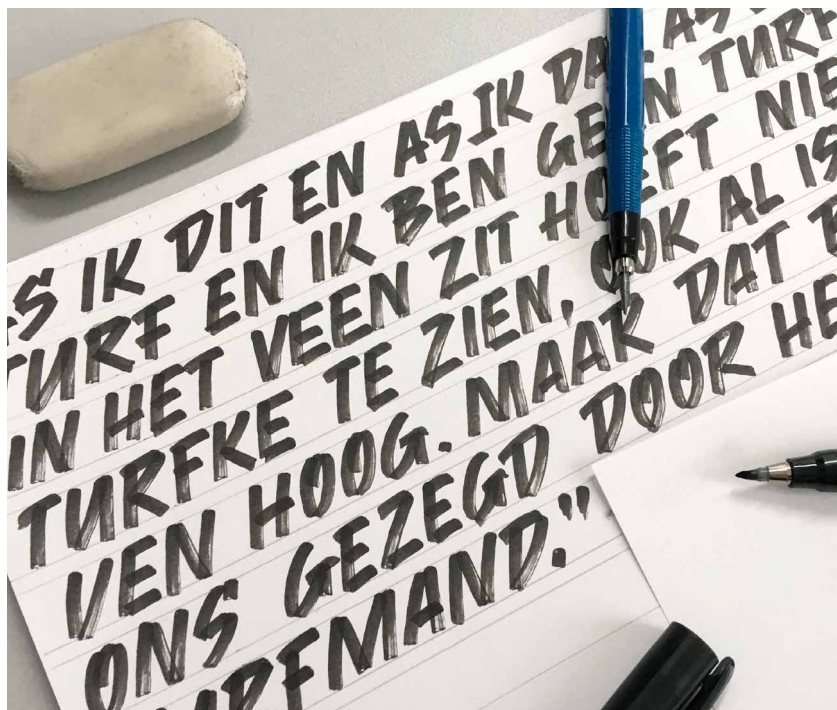 AS IK DIT EN AS IK DA. AS
TURF EN IK BEN GEEN TURF
IN HET VEEN ZIT HOEFT NIE
TURFKE TE ZIEN, OOK AL IS
VEN HOOG. MAAR DAT
ONS GEZEGD DOOR HE
MAND."